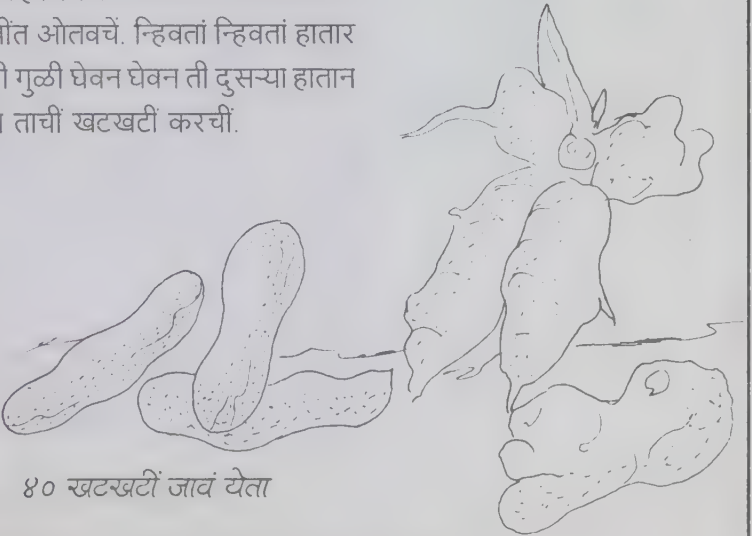 ओतवचें. न्हिवतां न्हिवतां हातार
गुळी घेवन घेवन ती दुसऱ्या हातान
ताचीं खटखटीं करचीं.
४० खटखटीं जावं येता